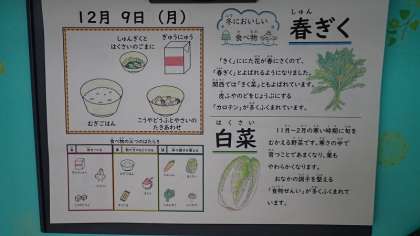 12月 9日（月）
しゅんぎくと
はくさいのごまに
ぎゅうにゅう
むぎごはん
こうやどうふとやさいの
たきあわせ
食べ物の三つのはたらき
冬においしい
食べ物
しゅん
春ぎく
「きく」ににた花が春にさくので、
「春ぎく」とよばれるようになりました。
関西では「きく菜」ともよばれています。
皮ふやのどをじょうぶにする
「カロテン」が多くふくまれています。
はくさい
白菜
11月～2月の寒い時期に旬を
むかえる野菜です。寒さの中で
育つことであまくなり、葉も
やわらかくなります。
おなかの調子を整える
「食物せんい」が多くふくまれて
います。